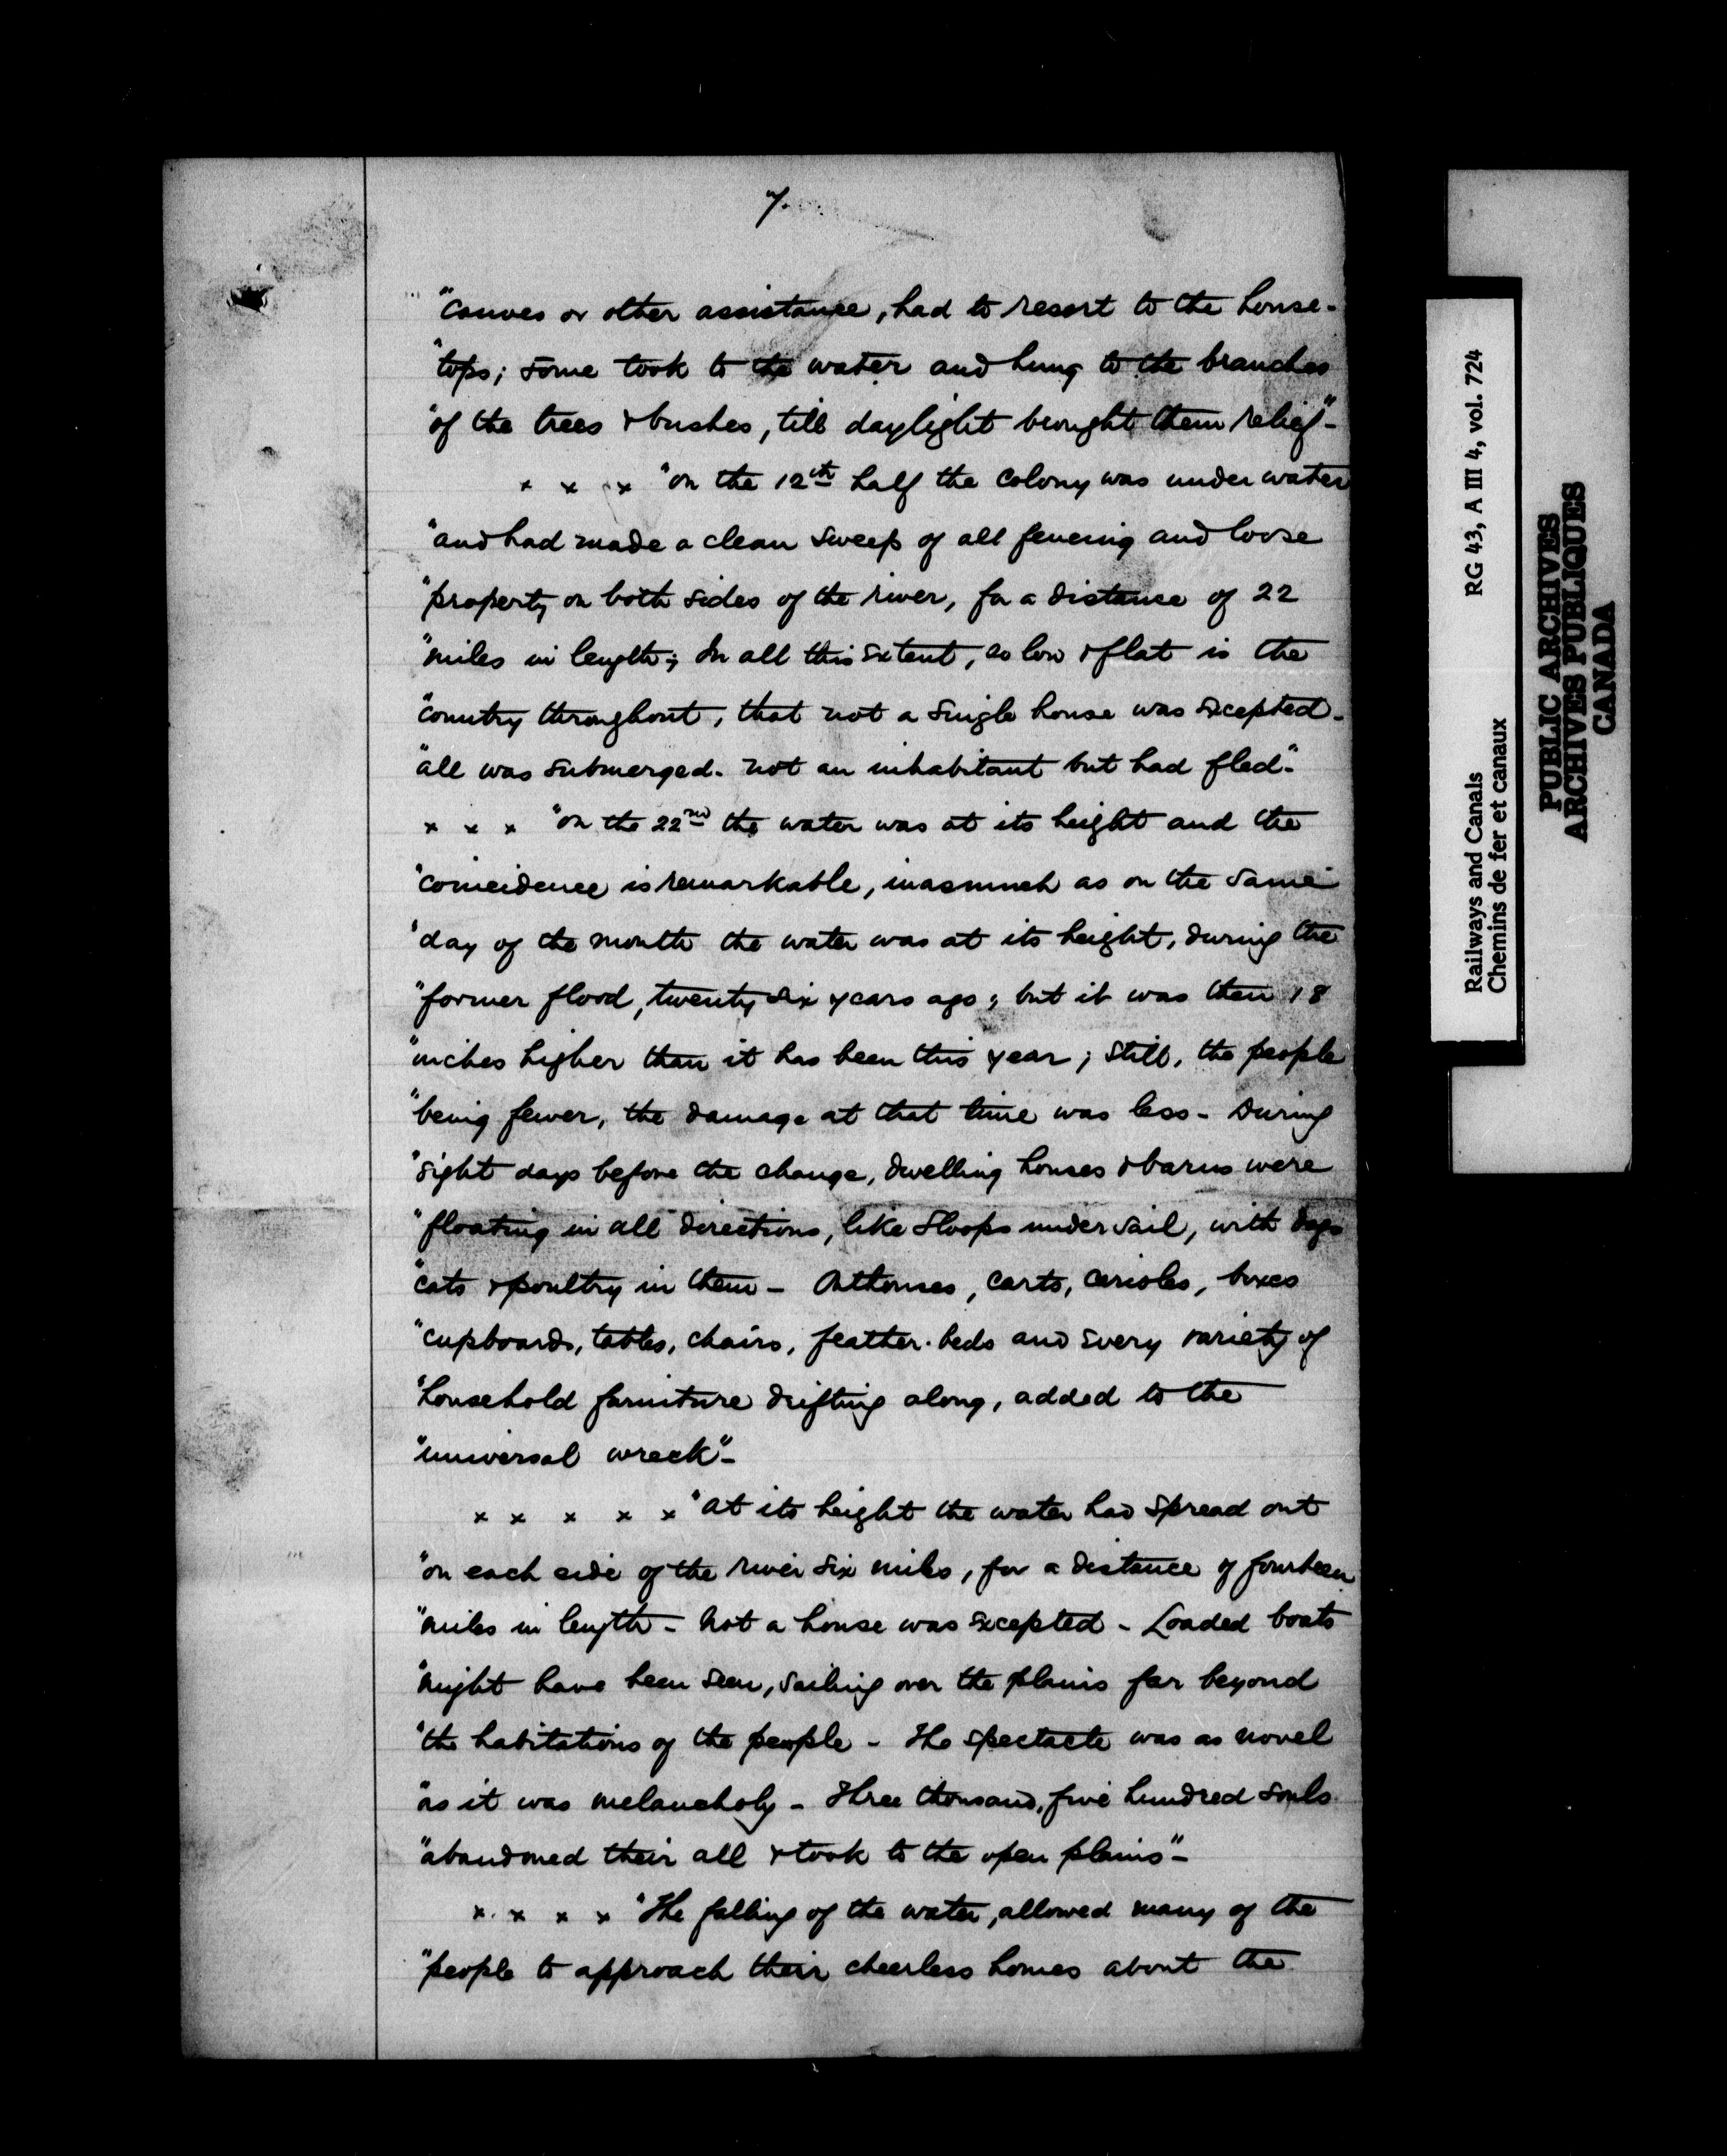 7.
"canoes or other assistance, had to resort to the house-
"tops; some took to the water and hung to the branches
"of the trees & bushes, till daylight brought them relief"-
x x x "on the 12th half the colony was under water
"and had made a clean sweep of all fencing and loose
"property on both sides of the river, for a distance of 22
"miles in length; In all this extent, so low & flat is the
"country throughout, that not a single house was excepted-
"all was submerged. not an inhabitant but had fled".
x x x "on the 22nd the water was at its height and the
"coincidence is remarkable, inasmuch as on the same
"day of the month the water was at its height, during the
"former flood, twenty six years ago; but it was then 18
"inches higher than it has been this year; still, the people
"being fewer, the damage at that time was less - During
"eight days before the change, dwelling houses & barns were
"floating in all directions, like sloops under sail, with dogs
"cats & poultry in them - Outhouses, carts, carioles, boxes
"cupboards, tables, chairs, feather-beds and every variety of
"household furniture drifting along, added to the
"universal wreck"-
x x x x x "at its height the water had spread out
"on each side of the river six miles, for a distance of fourteen
"miles in length - Not a house was excepted - Loaded boats
"might have been seen, sailing over the plains far beyond
"the habitations of the people - The spectacle was as novel
"as it was melancholy - Three thousand, five hundred souls
"abandoned their all & took to the open plains"-
x x x x "The falling of the water, allowed many of the
"people to approach their cheerless homes about the
Railways and Canals RG 43, A III 4, vol. 724
Chemins de fer et canaux
PUBLIC ARCHIVES
ARCHIVES PUBLIQUES
CANADA